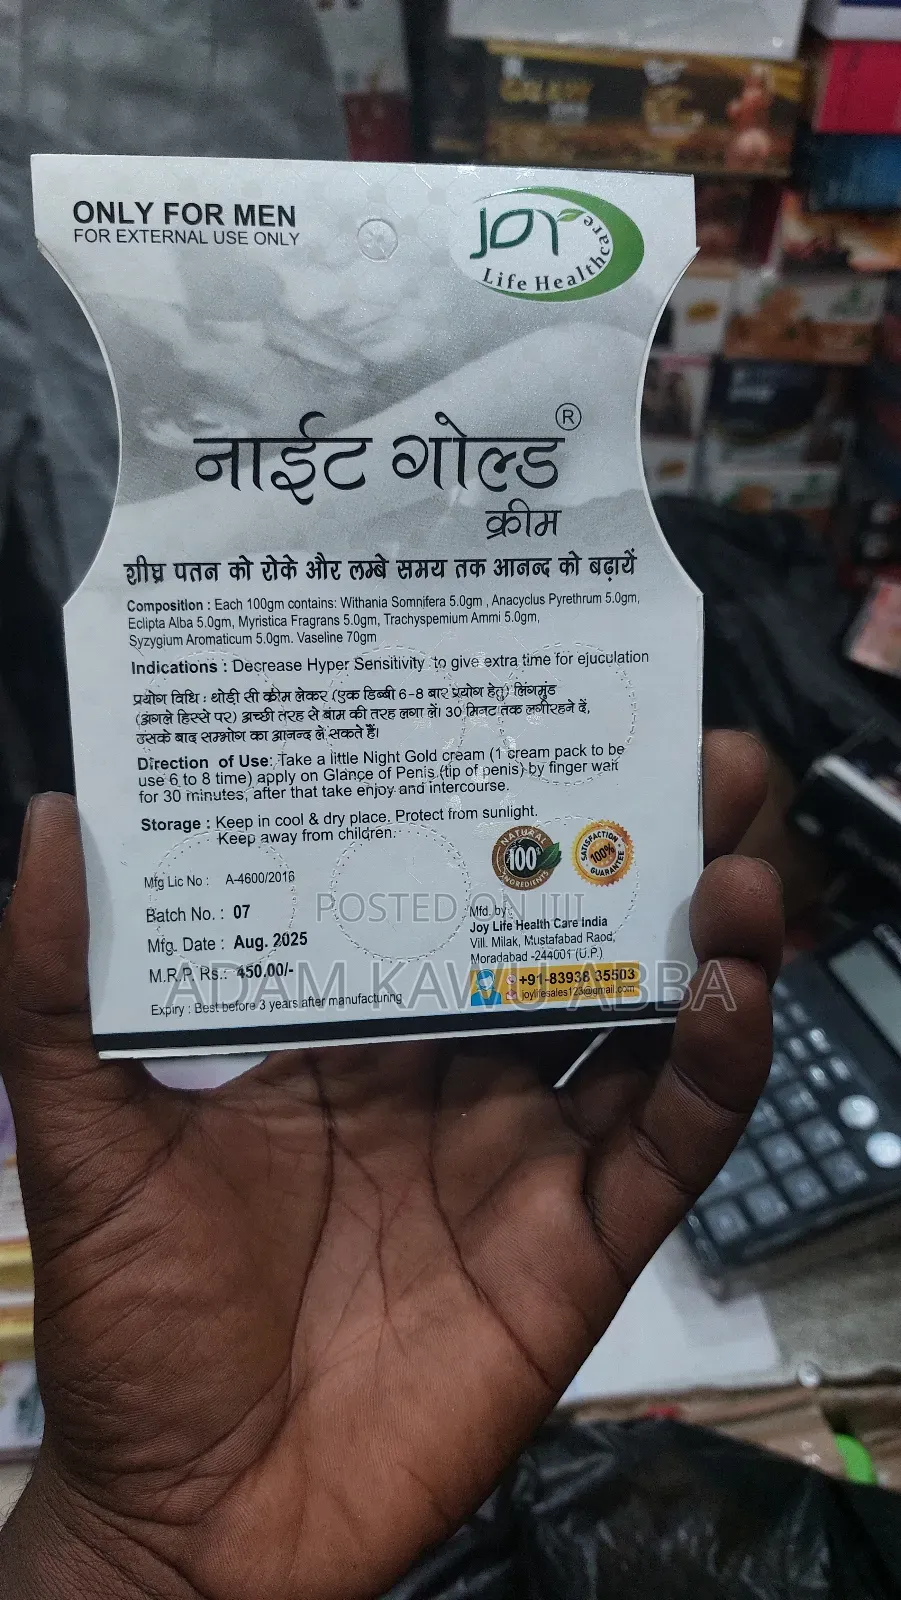 ONLY FOR MEN
FOR EXTERNAL USE ONLY
JOY
Life Healthcare
नाईट गोल्ड ®
क्रीम
शीघ्र पतन को रोके और लम्बे समय तक आनन्द को बढ़ायें
Composition : Each 100gm contains: Withania Somnifera 5.0gm , Anacyclus Pyrethrum 5.0gm,
Eclipta Alba 5.0gm, Myristica Fragrans 5.0gm, Trachyspemium Ammi 5.0gm,
Syzygium Aromaticum 5.0gm. Vaseline 70gm
Indications : Decrease Hyper Sensitivity to give extra time for ejuculation
प्रयोग विधि : थोड़ी सी क्रीम लेकर (एक डिब्बी 6-8 बार प्रयोग हेतु) लिंगमुंड
(अगले हिस्से पर) अच्छी तरह से बाम की तरह लगा लें। 30 मिनट तक लगी रहने दें,
उसके बाद सम्भोग का आनन्द ले सकते हैं।
Direction of Use: Take a little Night Gold cream (1 cream pack to be
use 6 to 8 time) apply on Glance of Penis (tip of penis) by finger wait
for 30 minutes, after that take enjoy and intercourse.
Storage : Keep in cool & dry place. Protect from sunlight.
Keep away from children.
NATURAL
100%
INGREDIENTS
SATISFACTION
100%
GUARANTEE
Mfg Lic No : A-4600/2016
Batch No. : 07
Mfg. Date : Aug. 2025
M.R.P. Rs.: 450.00/-
Expiry : Best before 3 years after manufacturing
Mfd. by:
Joy Life Health Care India
Vill. Milak, Mustafabad Raod,
Moradabad -244001 (U.P.)
+91-83938 35503
joylifesales123@gmail.com
POSTED ON JIJI
ADAM KAWU ABBA